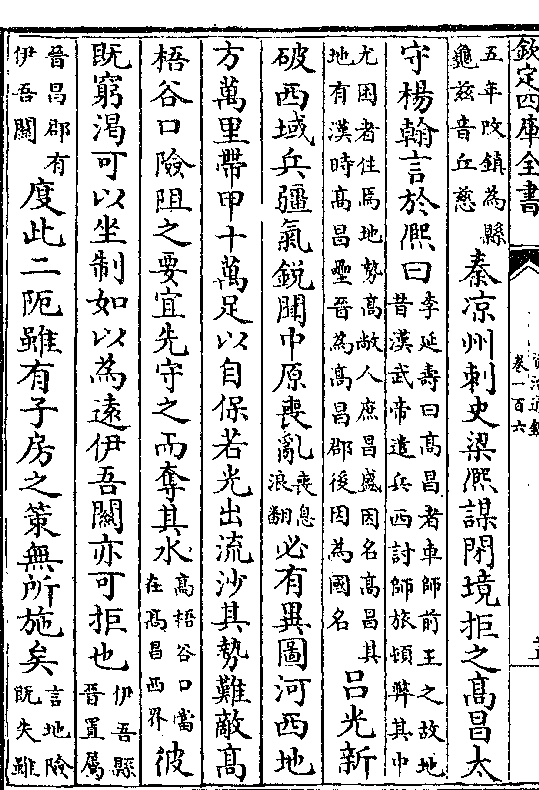 欽定四庫全書
卷一百六
五年改鎮為縣
龜兹音丘慈
秦凉州刺史梁熈謀閉境拒之髙昌太
守楊翰言於熈曰
李延壽曰髙昌者車師前王之故地
昔漢武帝遣兵西討師旅頓弊其中
尤困者住焉地勢髙敞人庶昌盛因名髙昌其
地有漢時髙昌壘晉為髙昌郡後因為國名
吕光新
破西域兵彊氣鋭聞中原喪亂
喪息
浪翻
必有異圖河西地
方萬里帶甲十萬足以自保若光出流沙其勢難敵髙
梧谷口險阻之要宜先守之而奪其水
髙梧谷口當
在髙昌西界
彼
既窮渴可以坐制如以為遠伊吾關亦可拒也
伊吾縣
晉置屬
晉昌郡有
伊吾關
度此二阨雖有子房之策無所施矣
言地險
既失雖